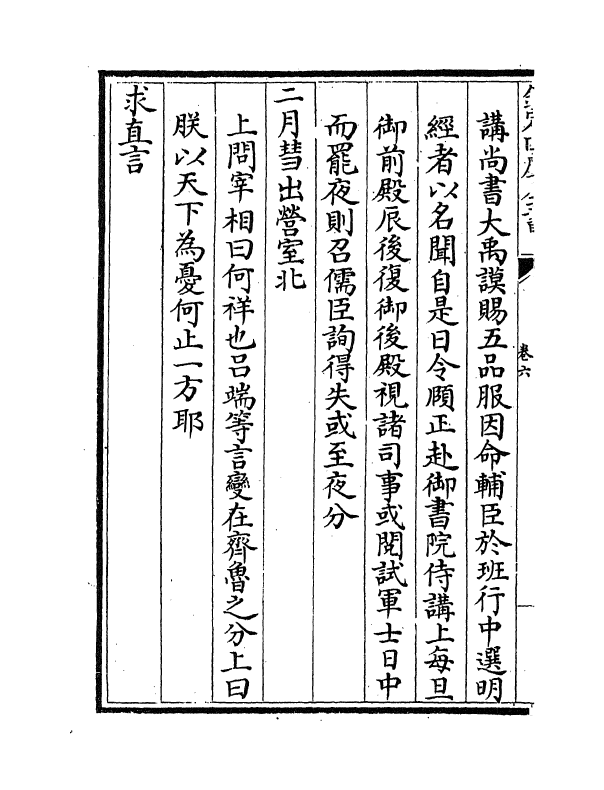 講尚書大禹謨賜五品服因命輔臣於班行中選明
經者以名聞自是日令頤正赴御書院侍講上每旦
御前殿辰後復御後殿視諸司事或閱試軍士日中
而罷夜則召儒臣詢得失或至夜分
二月彗出營室北
上問宰相曰何祥也呂端等言變在齊魯之分上曰
朕以天下為憂何止一方耶
求直言
卷六